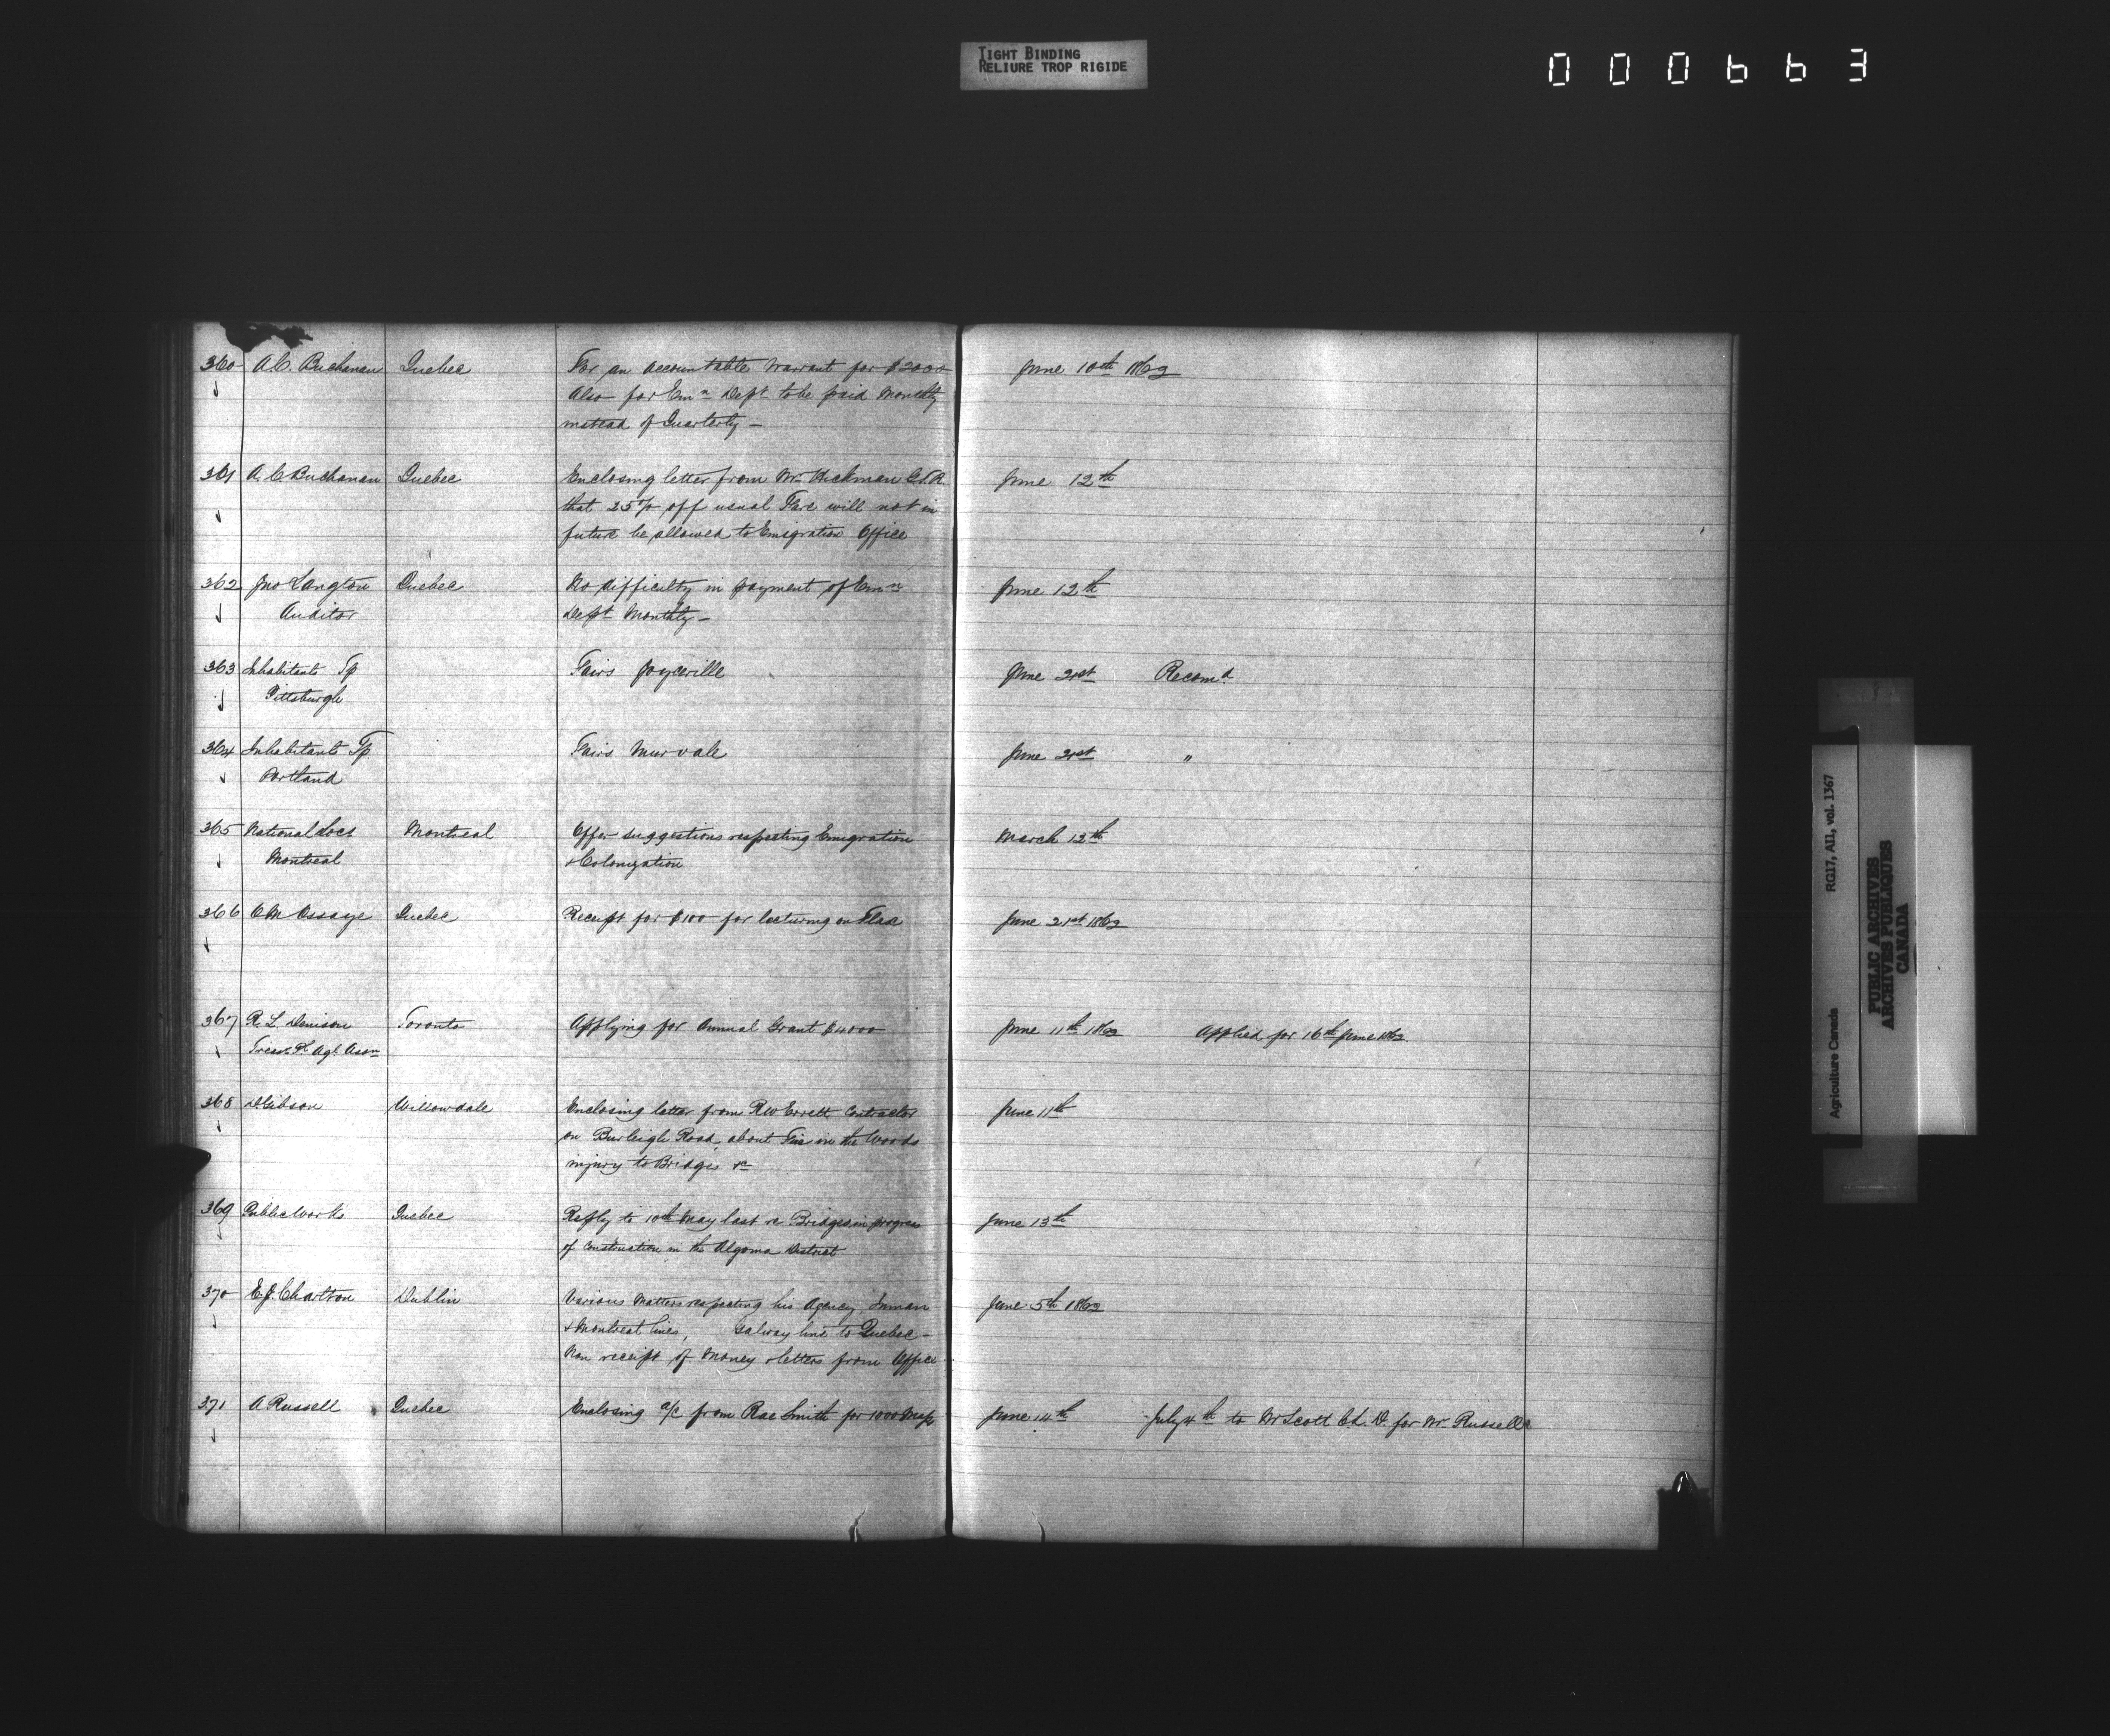 TIGHT BINDING
RELIURE TROP RIGIDE
000663
360 A.C. Buchanan Quebec For an accountable Warrant for $2000 June 10th 1862
Also for Emn Dept to be paid Monthly
instead of Quarterly —
361 A.C. Buchanan Quebec Enclosing letter from Mr Hickman G.T.R. June 12th
that 25% off usual Fare will not in
future be allowed to Emigration Office
362 Jno Langton Quebec No difficulty in payment of Emn June 12th
Auditor Dept Monthly —
363 Inhabitants Tp Fairs Joyceville June 21st Recomd
Pittsburgh
364 Inhabitants Tp Fairs Murvale June 21st "
Portland
365 National Socs Montreal Offer suggestions respecting Emigration March 12th
Montreal & Colonization
366 Quebec Receipt for $100 for lecturing on Flax June 21st 1862
367 R.L. Denison Toronto Applying for Annual Grant $4000 June 11th 1862 Applied for 16th June 1862
Treasr Agl Assn
368 D Gibson Willowdale Enclosing letter from RW Errett Contractor June 11th
on Burleigh Road about Fire in the Woods
injury to Bridges &c
369 Public Works Quebec Reply to 10th May last re Bridges in progress June 13th
of construction in the Algoma District
370 E.J. Charlton Dublin Various Matters respecting his Agency, Inman June 5th 1862
& Montreal lines, Galway line to Quebec —
Non receipt of Money & letters from Office
371 A Russell Quebec Enclosing a/c from Rae Smith for 1000 Maps June 14th July 4th to Mr Scott C.L.D. for Mr Russell
Agriculture Canada RG17, AII, vol. 1367
PUBLIC ARCHIVES
ARCHIVES PUBLIQUES
CANADA